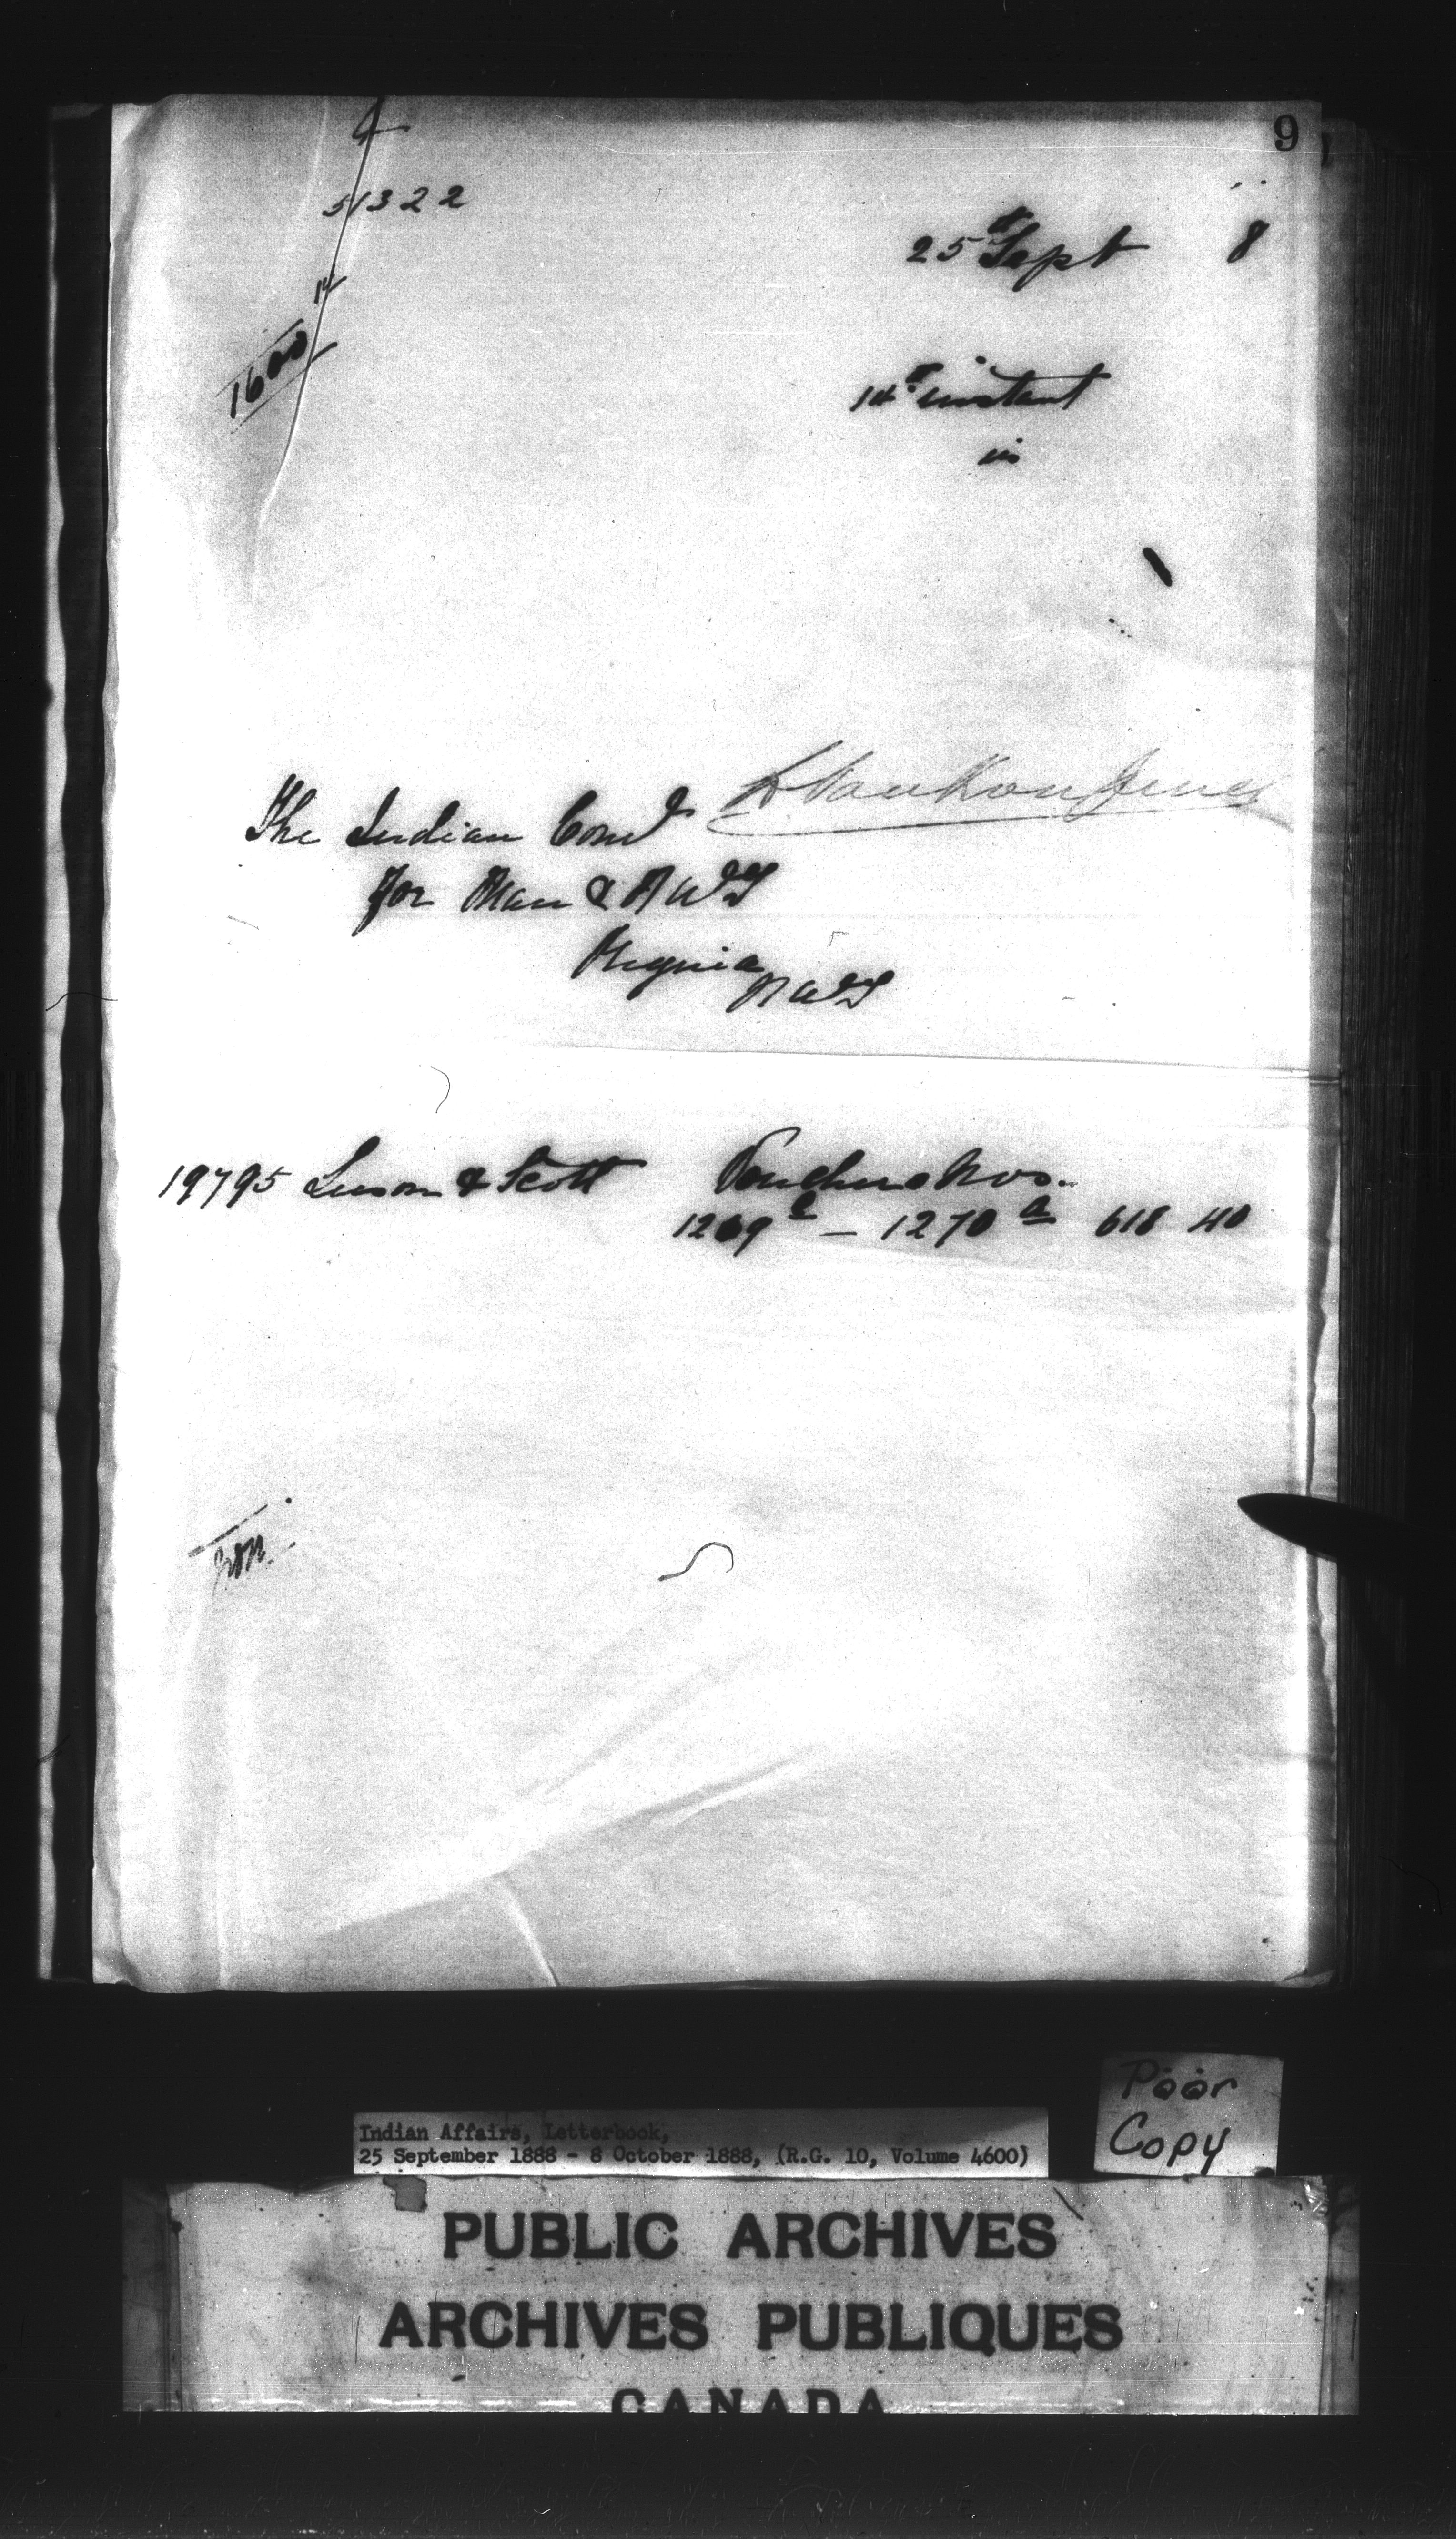 9
51322
25th Sept 8
1600
14th instant
in
The Indian Comr
for Man & N W T
Regina
N W T
19795 & Scott Vouchers Nos.
1269 a — 1270 a 618 40
Poor
Copy
Indian Affairs, Letterbook,
25 September 1888 - 8 October 1888, (R.G. 10, Volume 4600)
PUBLIC ARCHIVES
ARCHIVES PUBLIQUES
CANADA